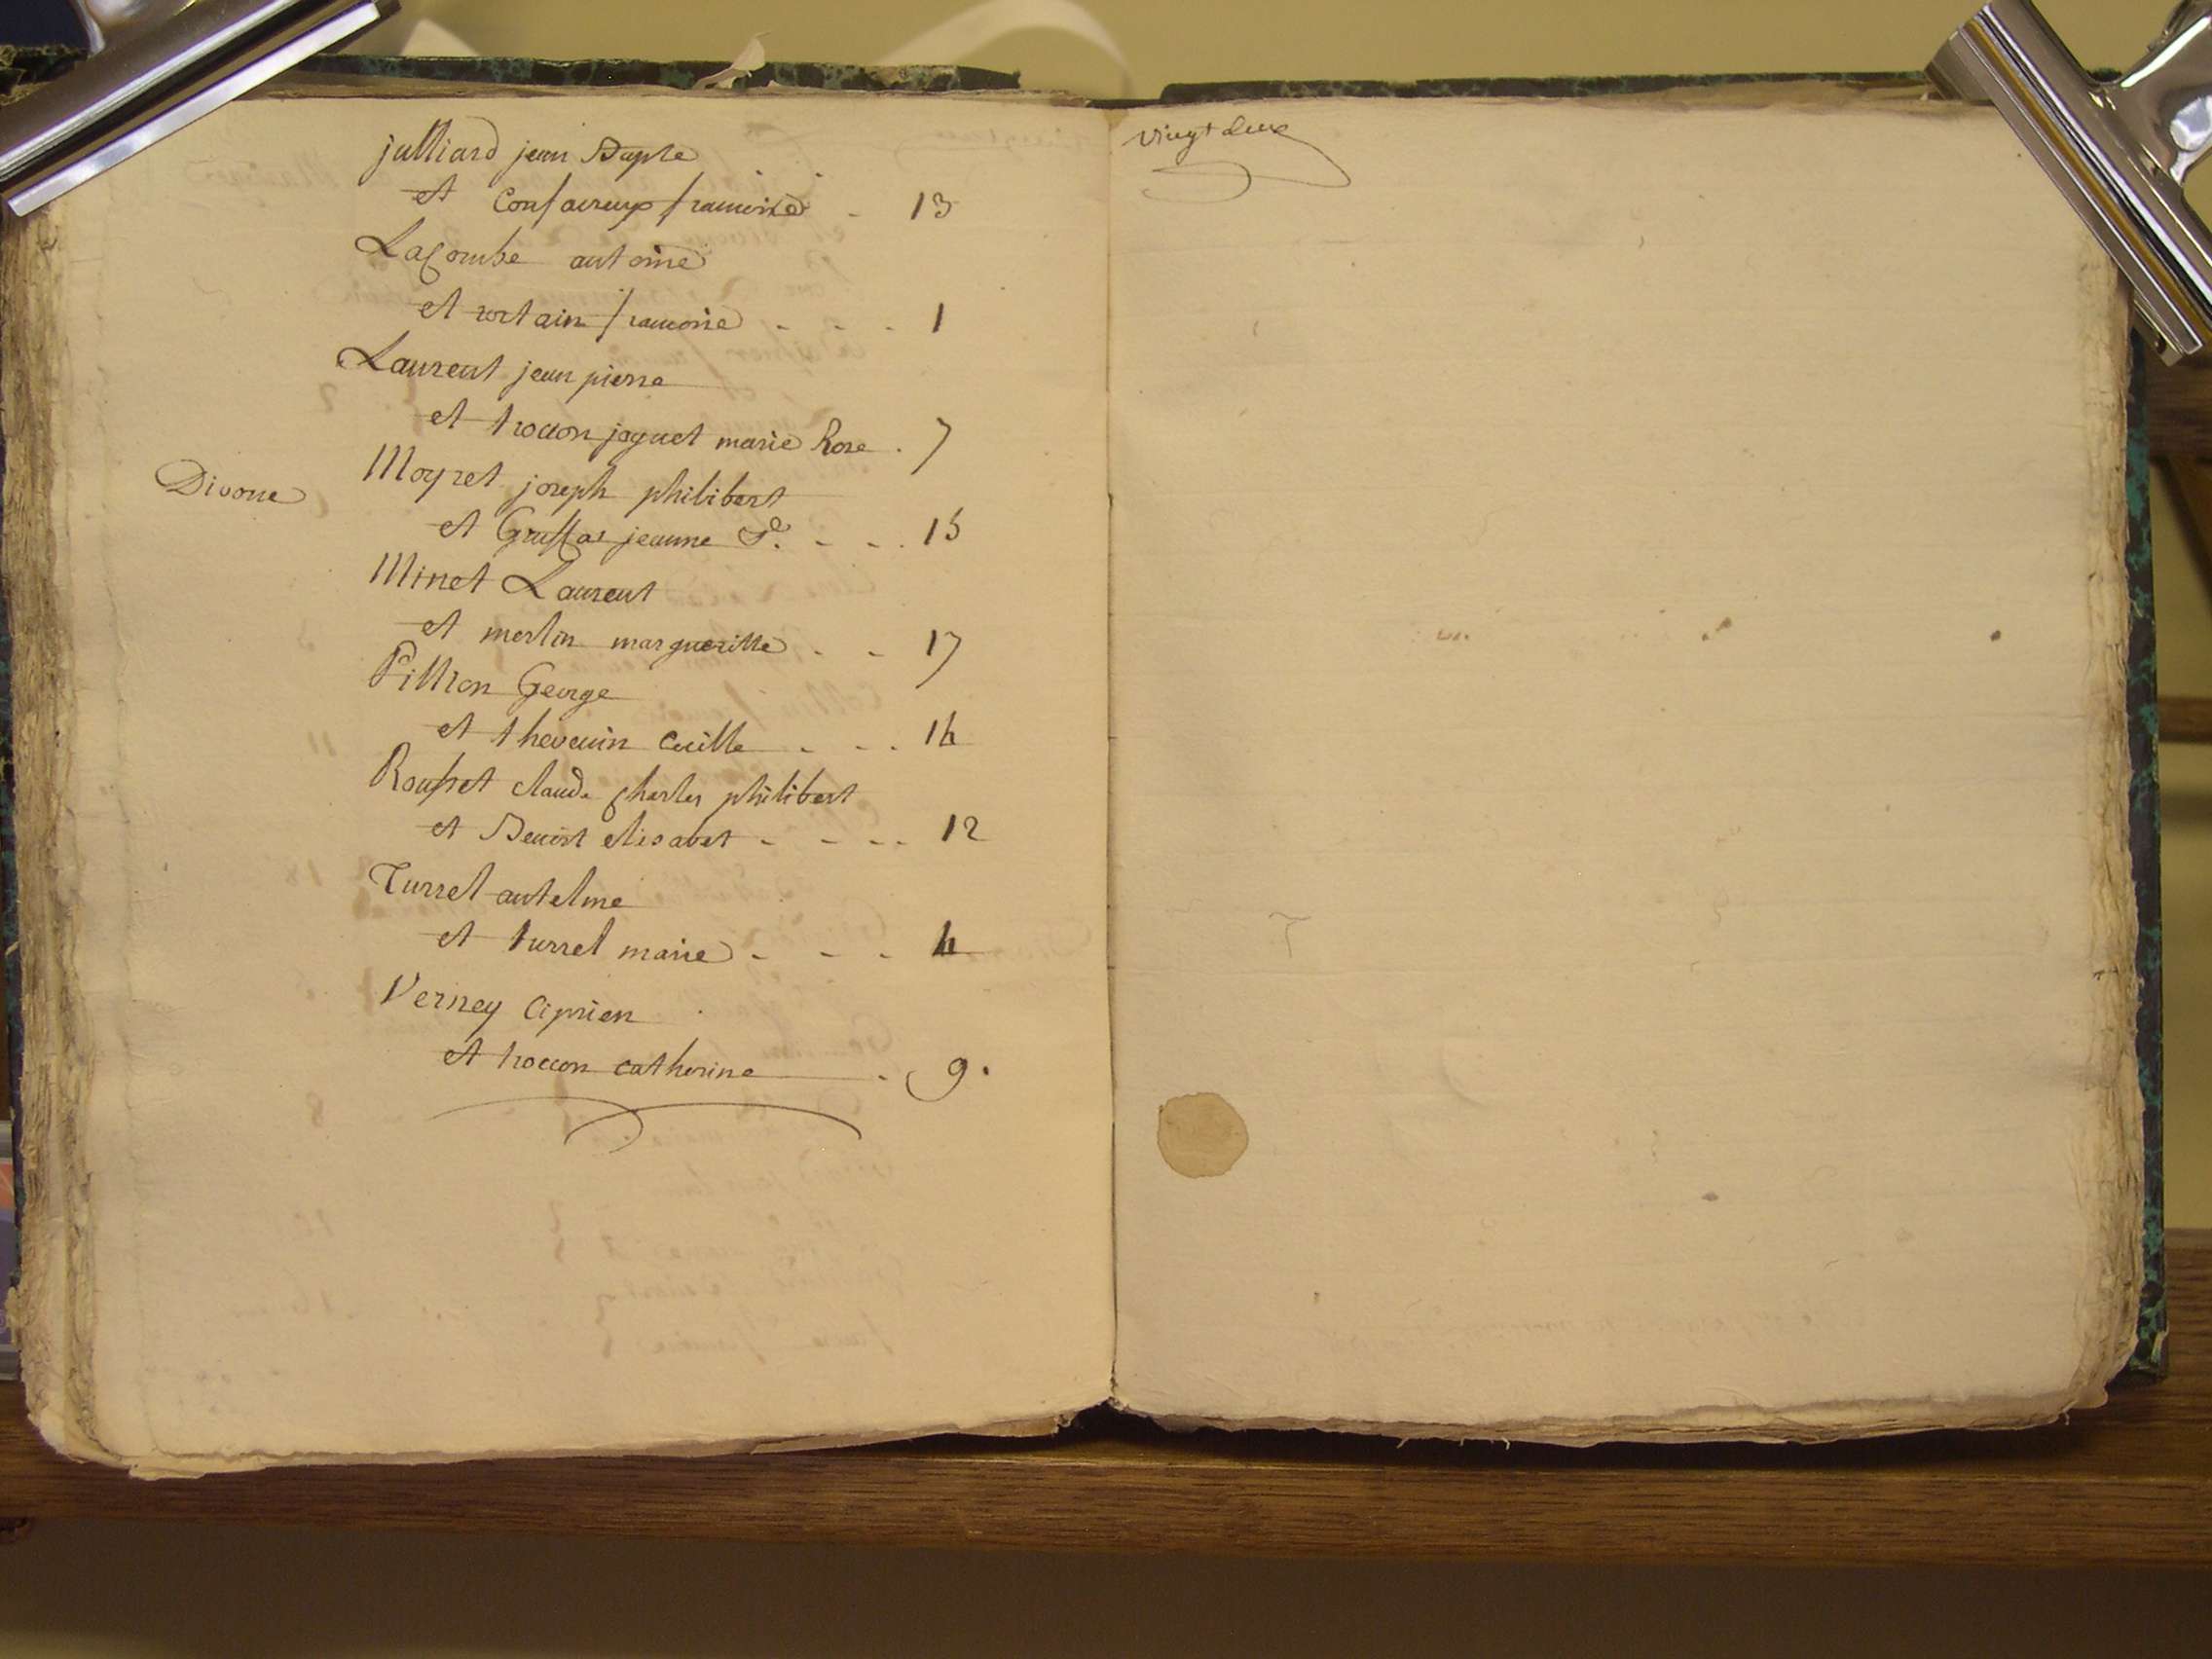 julliard jean Bapte
et Consavreux francoise - 13
Lacombe antoine
et rostain francoise - - - 1
Laurent jean pierre
et trocon jaquet marie Rose . 7
Divone
Moyret joseph philibert
et Grossas jeanne Pe. - - . 15
Minet Laurent
et merlin margueritte - - 17
Pillion George
et thevenin Cecille - - . 14
Rousset claude charles philibert
et Benoist elisabet - - - - 12
Turrel antelme
et turrel marie - - - 4
Verney Ciprien
et trocon catherine - 9.
vingt deux